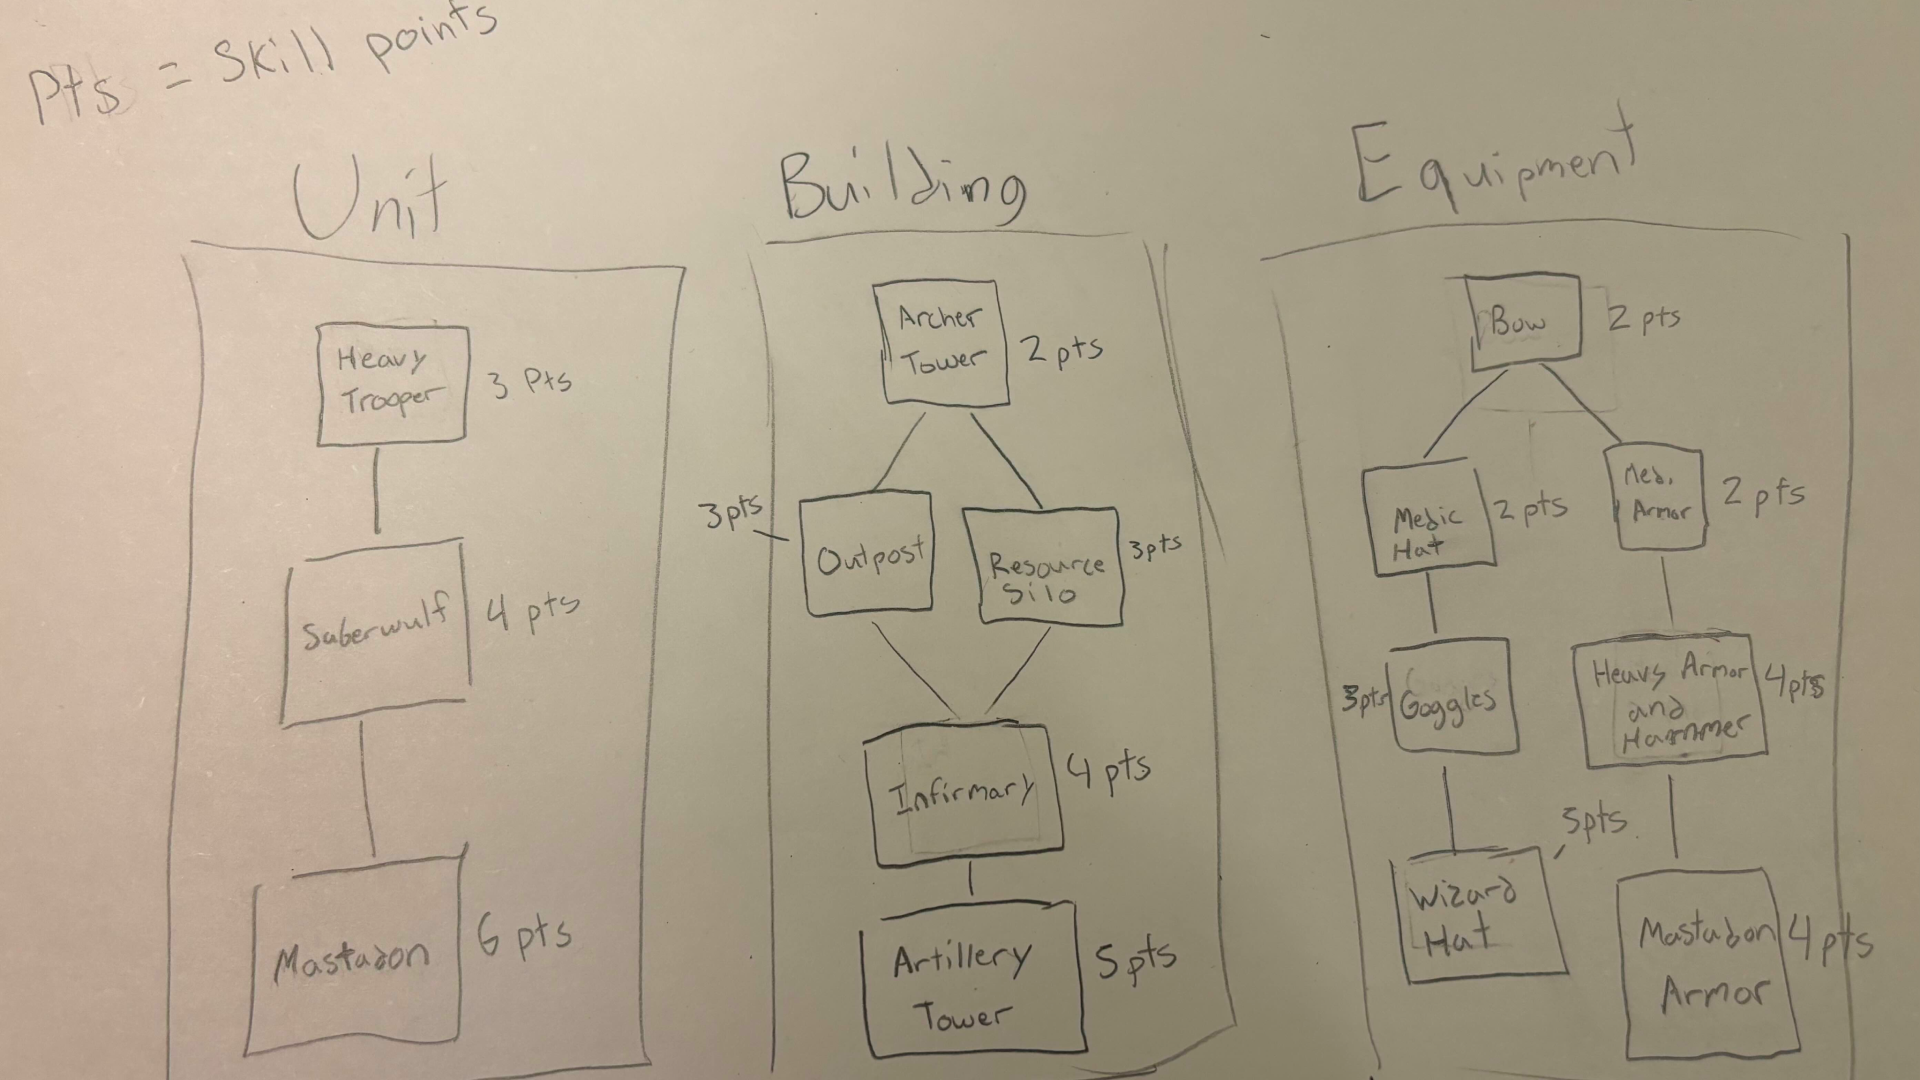 Pts = Skill points
Unit
Heavy
Trooper
3 Pts
Saberwulf
4 pts
Mastadon
6 pts
Building
Archer
Tower
2 pts
3pts
Outpost
Resource
Silo
3pts
Infirmary
4 pts
Artillery
Tower
5 pts
Equipment
Bow
2 pts
Medic
Hat
2 pts
Med.
Armor
2 pts
3pts
Goggles
Heavy Armor
and
Hammer
4pts
Wizard
Hat
5pts
Mastadon
Armor
4 pts